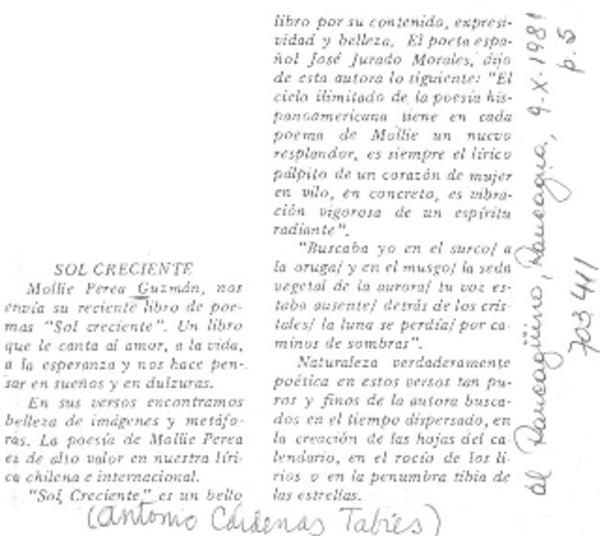 SOL CRECIENTE
Mollie Perea Guzmán, nos
envía su reciente libro de poe-
mas "Sol creciente". Un libro
que le canta al amor, a la vida,
a la esperanza y nos hace pen-
sar en sueños y en dulzuras.
En sus versos encontramos
belleza de imágenes y metáfo-
ras. La poesía de Mollie Perea
es de alto valor en nuestra líri-
ca chilena e internacional.
"Sol Creciente" es un bello
libro por su contenido, expresi-
vidad y belleza. El poeta espa-
ñol José Jurado Morales, dijo
de esta autora lo siguiente: "El
cielo ilimitado de la poesía his-
panoamericana tiene en cada
poema de Mollie un nuevo
resplandor, es siempre el lírico
pálpito de un corazón de mujer
en vilo, en concreto, es vibra-
ción vigorosa de un espíritu
radiante".
"Buscaba yo en el surco/ a
la oruga/ y en el musgo/ la seda
vegetal de la aurora/ tu voz es-
taba ausente/ detrás de los cris-
tales/ la luna se perdía/ por ca-
minos de sombras".
Naturaleza verdaderamente
poética en estos versos tan pu-
ros y finos de la autora busca-
dos en el tiempo dispersado, en
la creación de las hojas del ca-
lendario, en el rocío de los li-
rios o en la penumbra tibia de
las estrellas.
(Antonio Cárdenas Tabies)
El Rancagüino, Rancagua, 9-X-1981
p. 5
703411